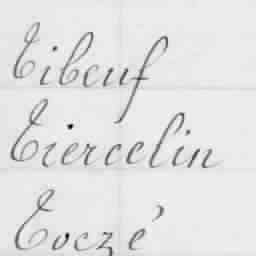 Tibeuf
Tiercelin
Toczé